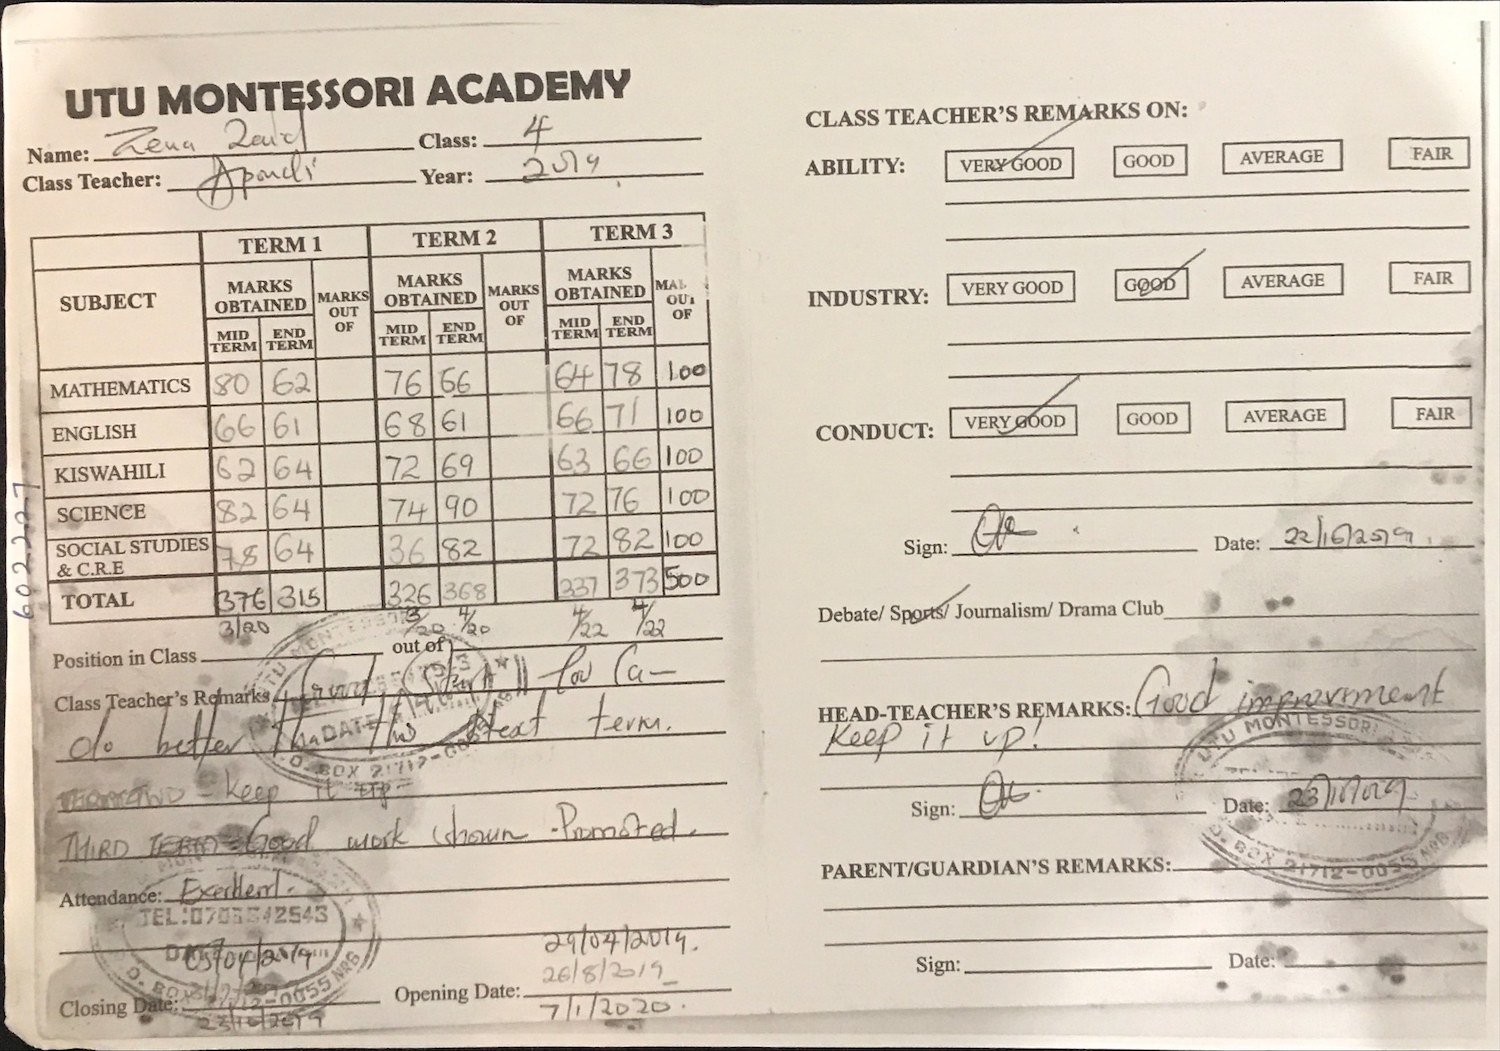 UTU MONTESSORI ACADEMY
Name: Zena Zeid Class: 4
Class Teacher: Apondi Year: 2019
TERM 1 TERM 2 TERM 3
SUBJECT MARKS OBTAINED MARKS OUT OF MARKS OBTAINED MARKS OUT OF MARKS OBTAINED OUT OF
MID TERM END TERM MID TERM END TERM MID TERM END TERM
MATHEMATICS 80 62 76 66 64 78 100
ENGLISH 66 61 68 61 66 71 100
KISWAHILI 62 64 72 69 63 66 100
SCIENCE 82 64 74 90 72 76 100
SOCIAL STUDIES & C.R.E 78 64 36 82 72 82 100
TOTAL 376 315 326 368 337 373 500
3/20 3/20 4/20 4/22 4/22
Position in Class out of
Class Teacher's Remarks Good Start
do better than this next term.
- Keep it up
THIRD TERM - Good work shown - Promoted.
Attendance: Excellent.
TEL:0705342543
05/04/2019
29/04/2019.
26/8/2019
Closing Date: 23/10/2019 Opening Date: 7/1/2020.
6022227
CLASS TEACHER'S REMARKS ON:
ABILITY: VERY GOOD GOOD AVERAGE FAIR
INDUSTRY: VERY GOOD GOOD AVERAGE FAIR
CONDUCT: VERY GOOD GOOD AVERAGE FAIR
Sign: Date: 22/10/2019.
Debate/ Sports/ Journalism/ Drama Club
HEAD-TEACHER'S REMARKS: Good improvement
Keep it up!
UTU MONTESSORI
Sign: Date: 23/10/2019
O. BOX 21712-0055 NRB
PARENT/GUARDIAN'S REMARKS:
Sign: Date: